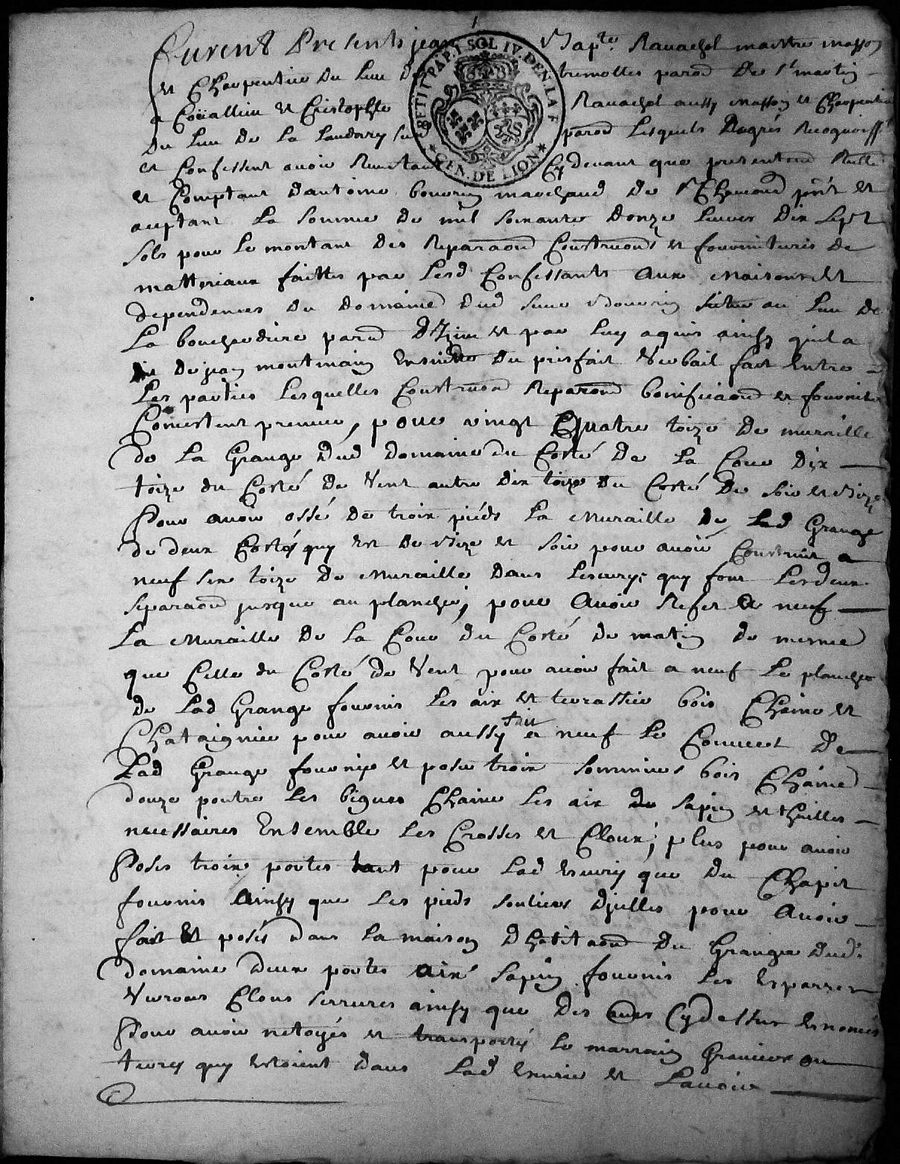 furent presents jean Bapte. Ravachol maitre masson
et Charpentier du lieu des tremolles parod de st martin
a Coüallieu et Cristophle Ravachol aussy masson et Charpentier
du lieu de la parod lesquels degrés
et Confessent avoir cy devant que presentement
et Comptant dantoine bouvrin marchand de st Chamond pnt et
aceptant la somme de mil soixante douze livres dix sept
sols pour le montant des Reparaons Construons et fournitures de
matteriaux faittes par lesd Confessants aux maisons et
dependences du domaine dud sieur bouvrin situé au lieu de
la parod dizieu et par luy aquis ainsy quil a
dit de jean montmain Ensuitte du prisfait verbail fait entre
les parties lesquelles Construon Reparaons bonificaons et fournitures
Consistent premier, pour vingt quatre toize de muraille
de la Grange dud domaine du Costé de la Cour dix
toize du Costé de vent autre dix toize du Costé de soir et bize
pour avoir ossé de trois pieds la muraille de lad Grange
de deux Costés quy est de bize et soir pour avoir Construit a
neuf six toize de muraille dans lescurye quy font les deux
separaons jusque au plancher, pour avoir Refet a neuf
la muraille de la Cour du Costé de matin de meme
que Celle du Costé de vent pour avoir fait a neuf le plancher
de lad Grange fournis les aix et terrassier bois Chaine et
Chataignier pour avoir aussy fait a neuf le Couvert de
lad Grange fournis et posé trois sommiers bois Chaine
douze poutre les bigues Chaine les aix de sapin et thuilles
necessaires Ensemble les Crosses et Cloux; plus pour avoir
posés trois portes tant pour lad Escurie que du Chapit
fournis ainsy que les pieds soutiens dycelles pour avoir
fait et posés dans la maison dhabitaon du Granger dud.
domaine deux portes aix sapin fournis les Esparres
verrous Clous serrures ainsy que des autres Cydessus Enoncés
pour avoir netoyés et transportés le marrain Gravier ou
terres quy Estoient dans lad Escurie et